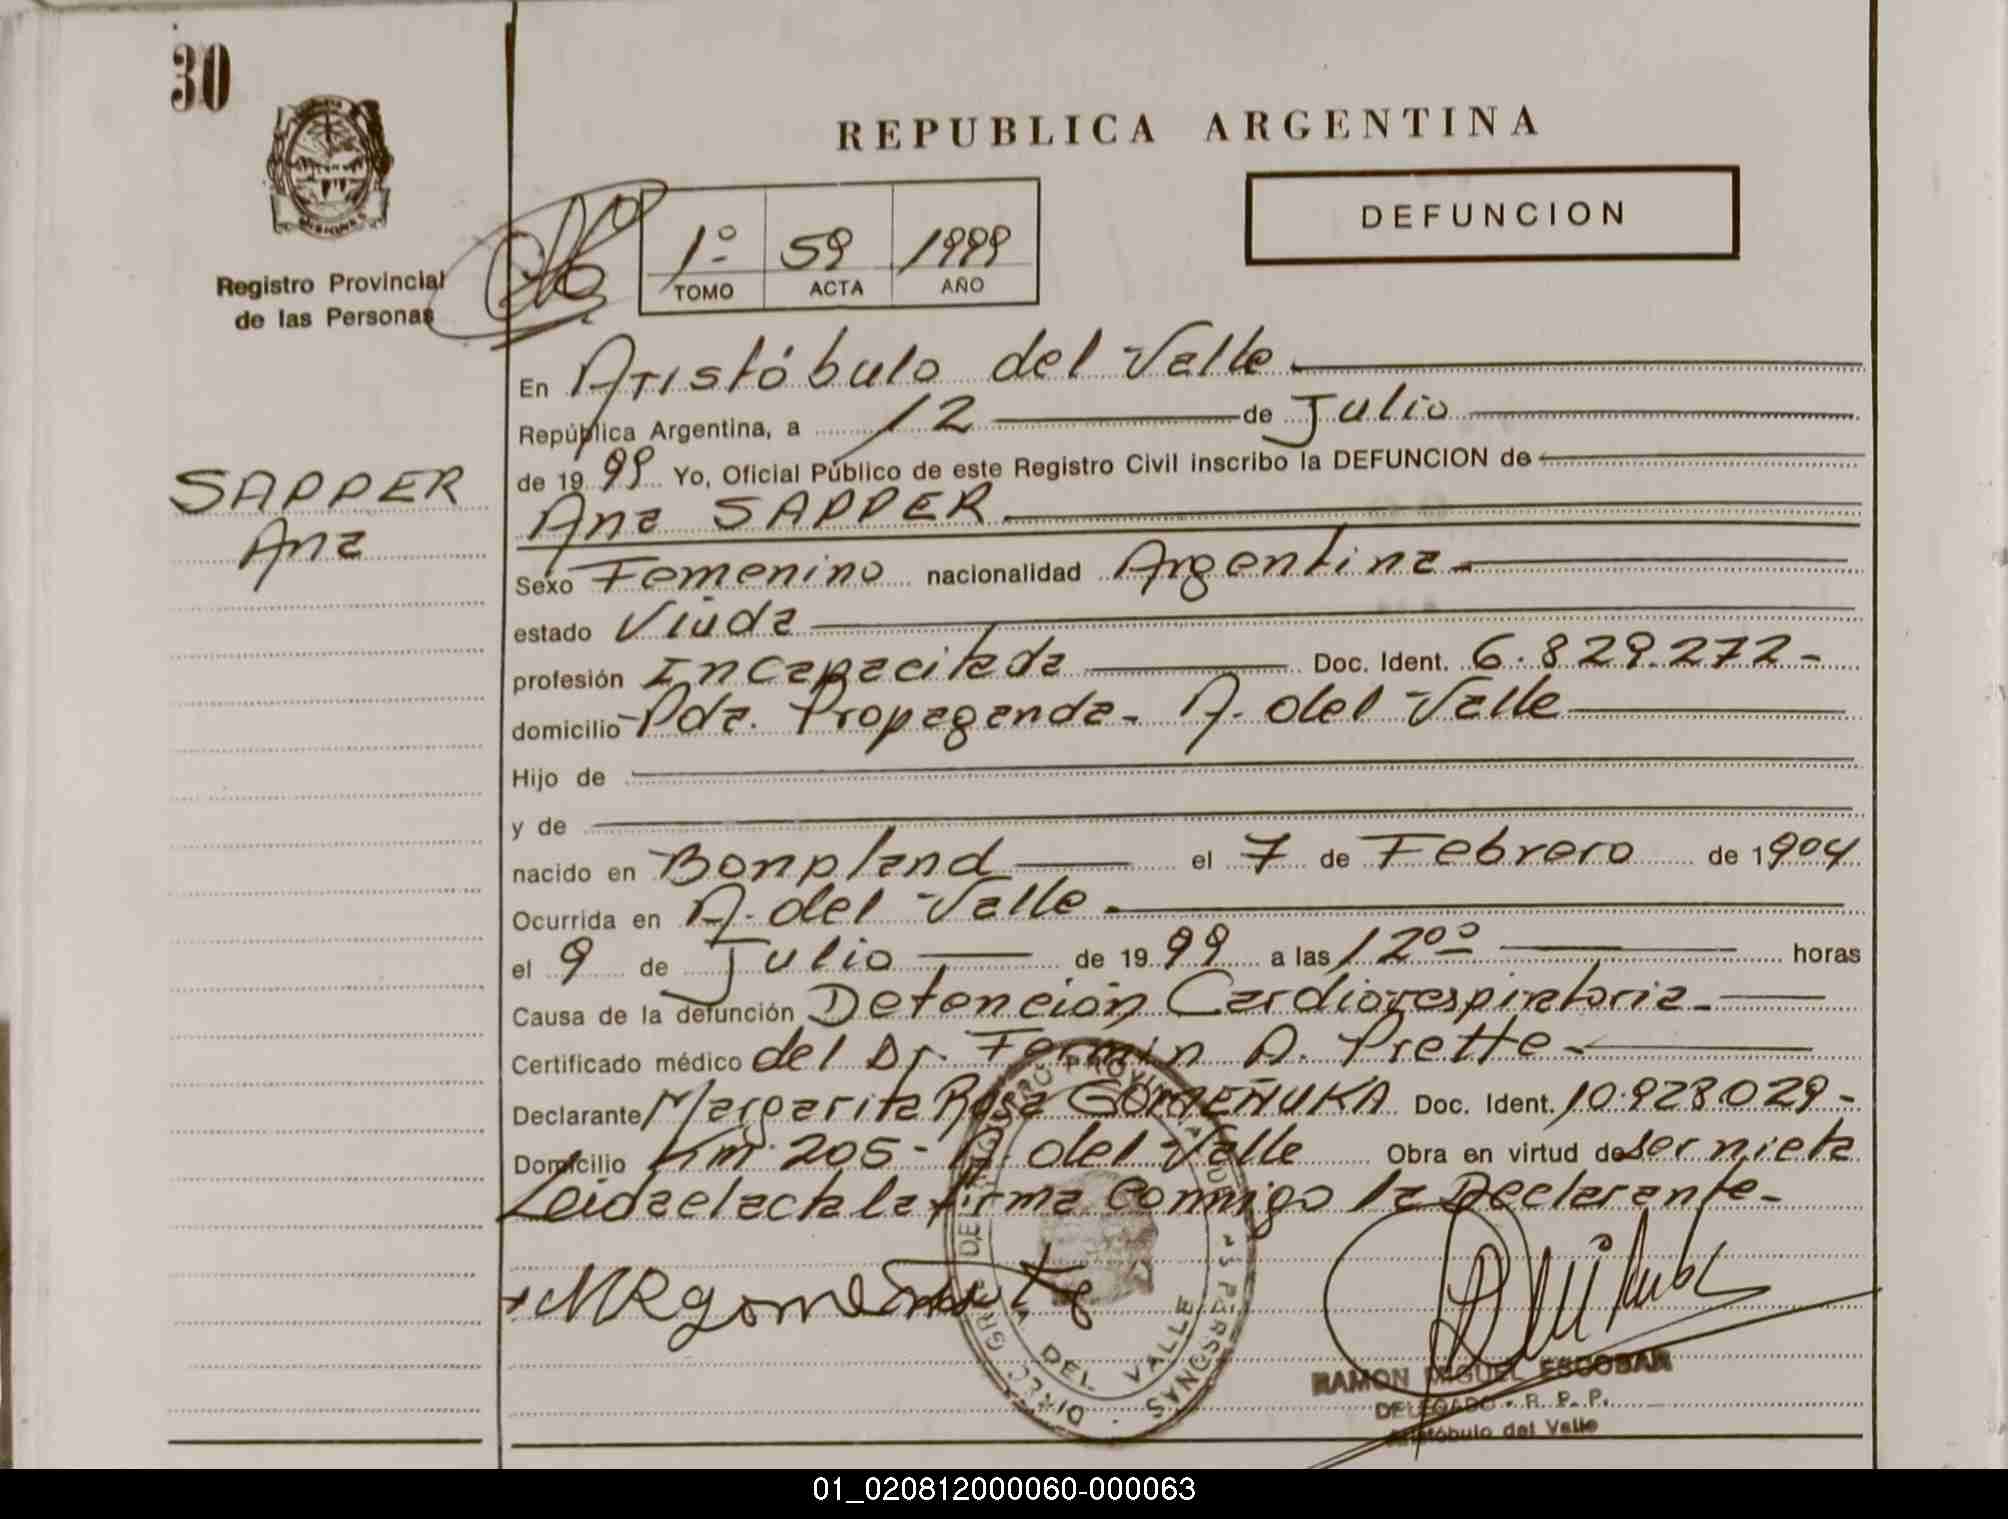 30
REPUBLICA ARGENTINA
DEFUNCION
Registro Provincial
de las Personas
1º 59 1999
TOMO ACTA AÑO
En Aristóbulo del Valle
República Argentina, a 12 de Julio
de 1999 Yo, Oficial Público de este Registro Civil inscribo la DEFUNCION de
SAPPER
Ana
Ana SAPPER
Sexo Femenino nacionalidad Argentina
estado Viuda
profesión Incapacitada Doc. Ident. 6.829.272-
domicilio Pda. Propaganda- A. del Valle
Hijo de
y de
nacido en Bonpland el 7 de Febrero de 1904
Ocurrida en A. del Valle
el 9 de Julio de 1999 a las 12ºº horas
Causa de la defunción Detención Cardiorespiratoria
Certificado médico del Dr. Fermín A. Prette
Declarante Margarita Rosa GOMEÑUKA Doc. Ident. 10.928029-
Domicilio Km. 205- A. del Valle Obra en virtud de ser nieta
Leida el acta la firma conmigo la Declarante-
DEL VALLE
RAMON MIGUEL ESCOBAR
DELEGADO - R. P. P.
Aristóbulo del Valle
01_020812000060-000063